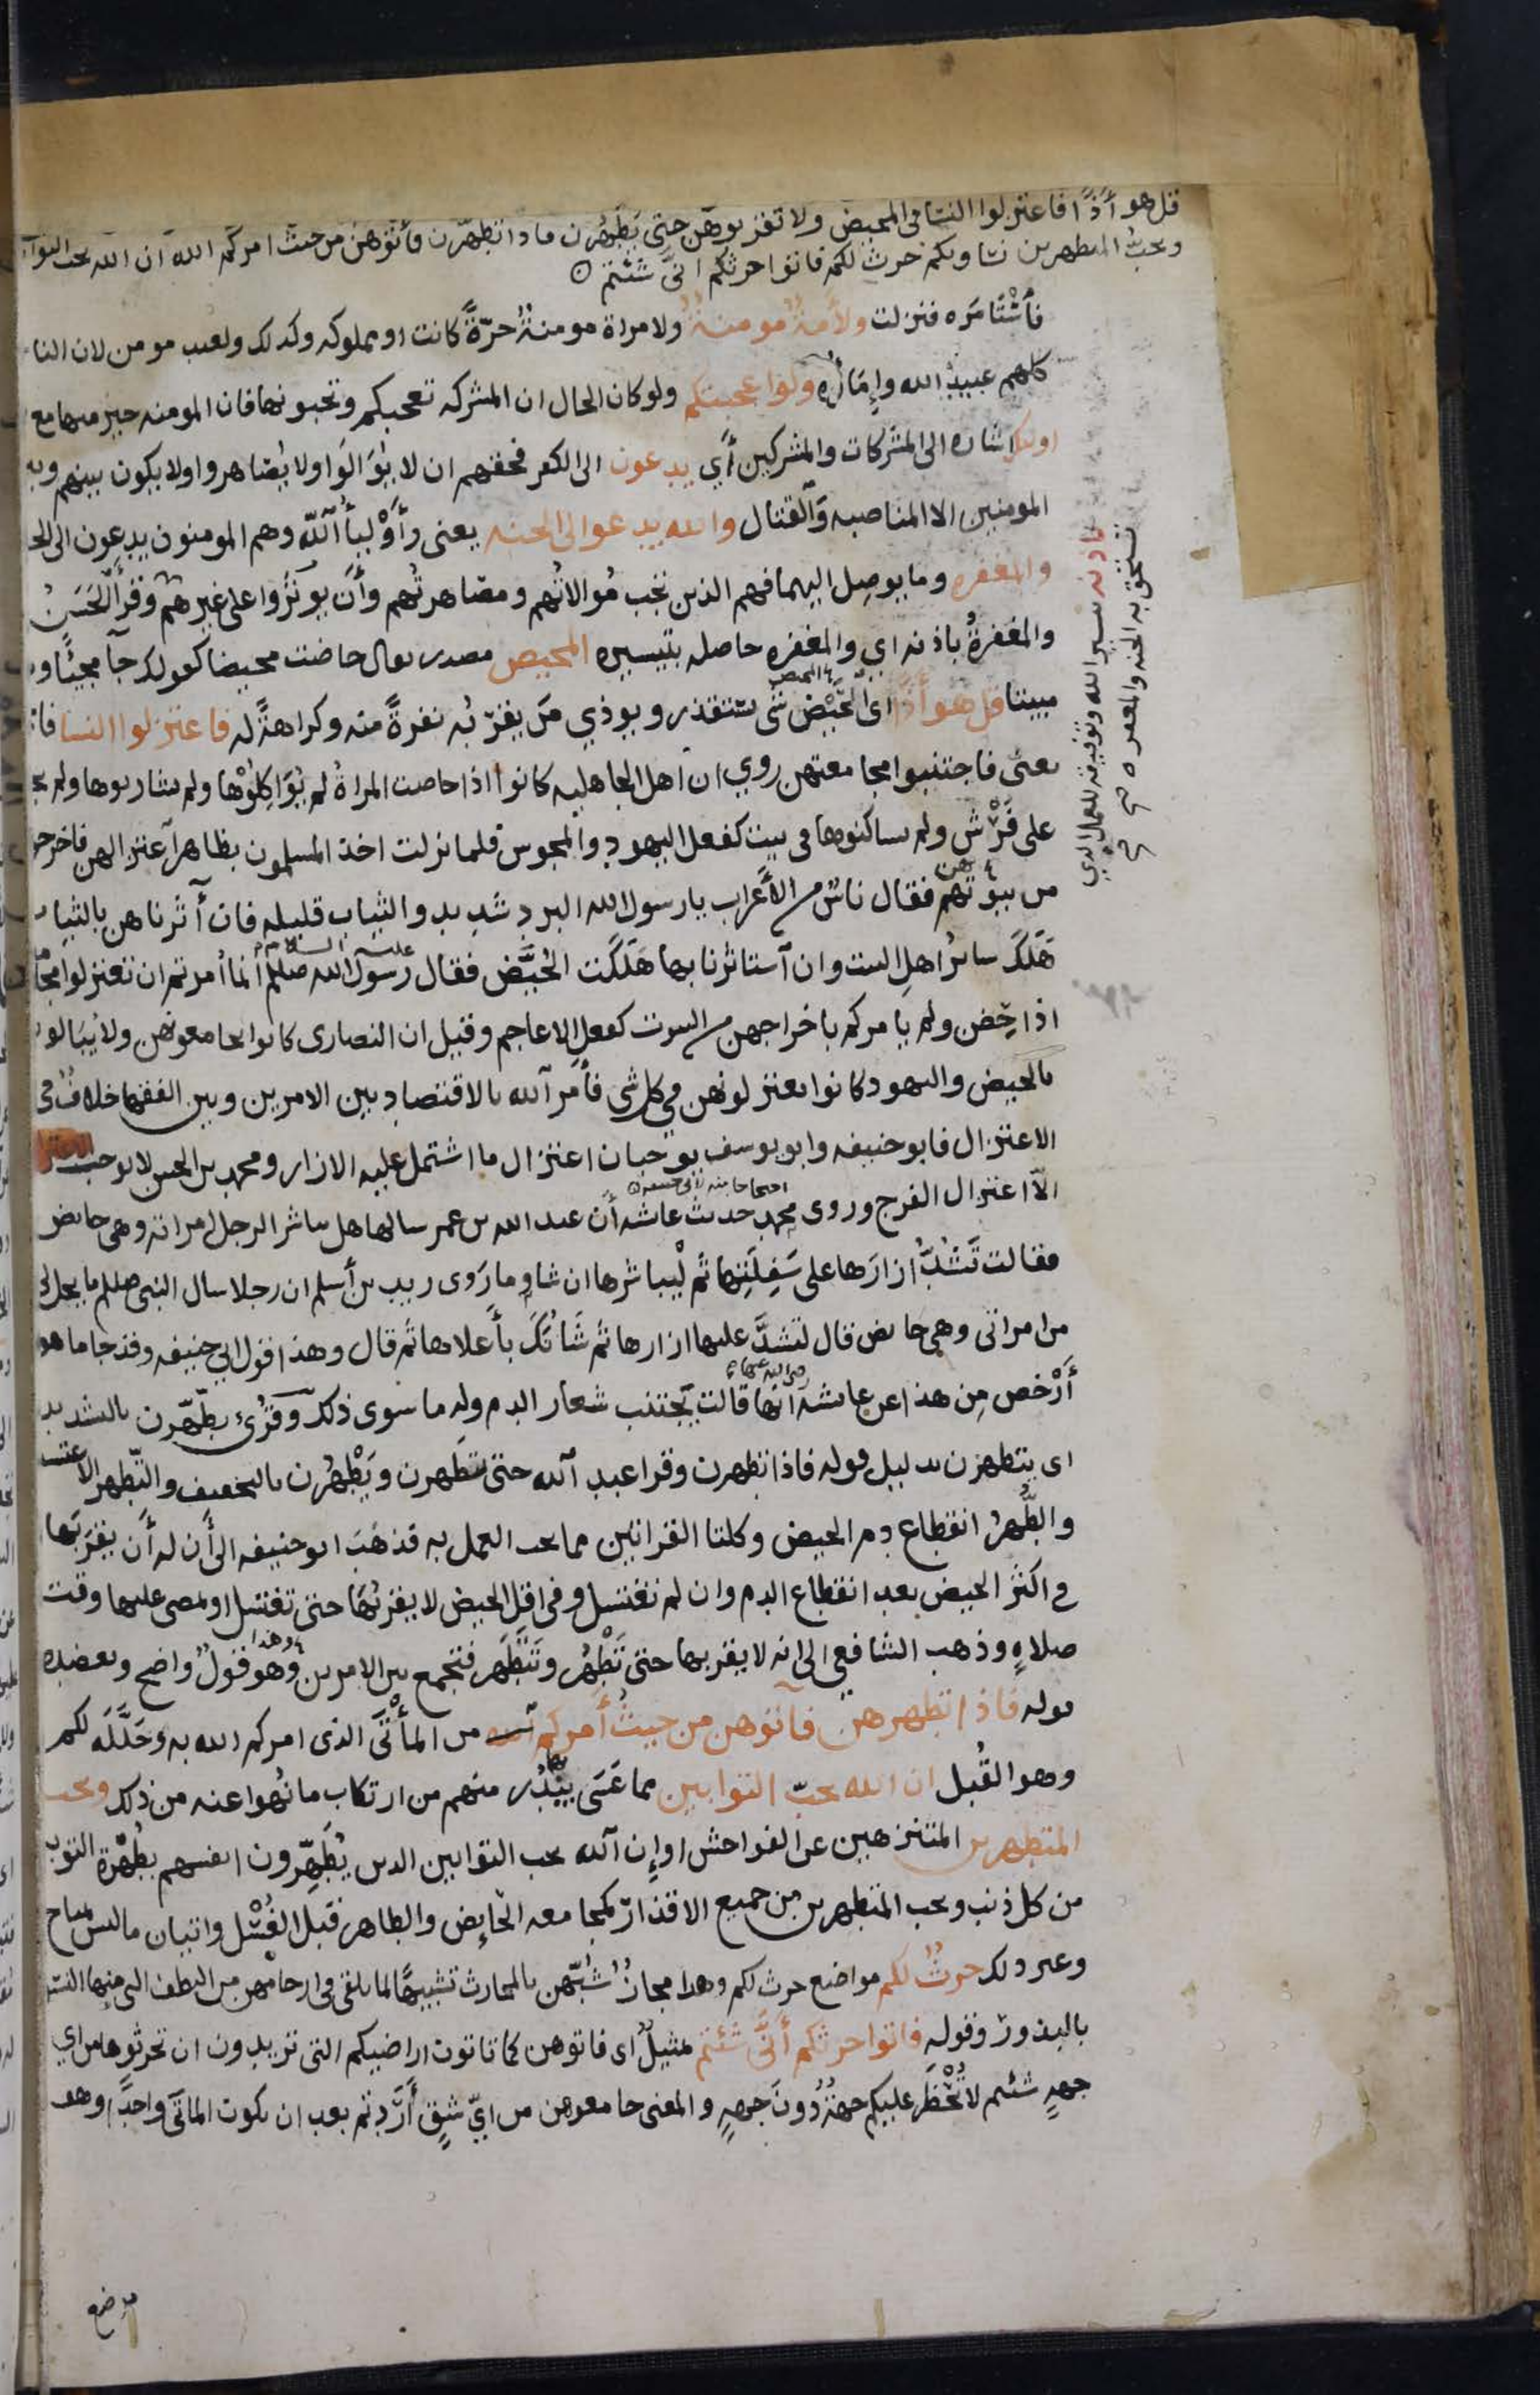 قل هو أذًا فاعتزلوا النسا فى المحيض ولا تقربوهن حتى يطهرن فاذا تطهرن فأتوهن من حيث امركم الله ان الله يحب التوا
ويحب المتطهرين نساوكم حرث لكم فاتوا حرثكم انى شئتم
فأستامره فنزلت ولأمة مومنة ولامراة مومنة حرّة كانت او مملوكه وكذلك ولعبد مومن لان النا
كلهم عبيد الله وإماؤه ولو اعجبتكم ولو كان الحال ان المشركه تعجبكم وتحبونها فان المومنه خير منها مع
اولئك اشاره الى المشركات والمشركين أي يدعون الى الكفر فحقهم ان لا يوالوا ولا يصاهروا ولا يكون بينهم وبين
المومنين الا المناصبه والقتال والله يدعوا الى الجنه يعنى وأوليأ الله وهم المومنون يدعون الى الجنه
والمغفره وما يوصل اليهما فهم الذين تجب موالاتهم ومصاهرتهم وأن يوثروا على غيرهم وقرأ الحسن
والمغفرة باذنه اى والمغفره حاصله بتيسيره المحيض مصدر يقال حاضت محيضا كقولك جآ مجيئًا وبات
مبيتا قل هو أذًا اى الحيض شى يستقذر ويوذي من يقربه نفرةً منه وكراهةً له فاعتزلوا النسا فا
يعنى فاجتنبوا مجامعتهن روي ان اهل الجاهليه كانوا اذا حاضت المراة لم يواكلوها ولم يشاربوها ولم يجا
على فرش ولم يساكنوها فى بيت كفعل اليهود والمجوس فلما نزلت اخذ المسلمون بظاهر اعتزالهن فاخرجوهن
من بيوتهم فقال ناس من الأعراب يا رسول الله البرد شديد والثياب قليله فان آثرناهن بالثياب
هلك سائر اهل البيت وان استاثرنا بها هلكت الحيّض فقال رسول الله صللم عليه السلام انما أمرتم ان تعتزلوا مجا
اذا حضن ولم يامركم باخراجهن من البيوت كفعل الاعاجم وقيل ان النصارى كانوا يجامعونهن ولا يبالون
بالحيض واليهود كانوا يعتزلونهن في كل شى فأمر الله بالاقتصاد بين الامرين وبين الفقها خلاف فى
الاعتزال فابو حنيفه وابو يوسف يوجبان اعتزال ما اشتمل عليه الازار ومحمد بن الحسن لا يوجب
الا اعتزال الفرج وروى محمد حديث عائشه أن عبد الله بن عمر سالها هل يباشر الرجل امراته وهى حائض
فقالت تشدّ ازارها على سفلتها ثم ليباشرها ان شا وما روى زيد بن أسلم ان رجلا سال النبى صللم ما يحل لى
من امراتى وهى حائض قال لتشدّ عليها ازارها ثم شأنك بأعلاها ثم قال وهذا قول ابي حنيفه وقد جا ما هو
أرخص من هذا عن عائشه رضى الله عنها انها قالت يجتنب شعار الدم وله ما سوى ذلك وقرئ يطّهّرن بالتشديد
اى يتطهرن بدليل قوله فاذا تطهرن وقرا عبد الله حتى يتطهرن ويطهرن بالتخفيف والتطهر الاغتسال
والطهر انقطاع دم الحيض وكلتا القرائتين مما يجب العمل به فذهب ابو حنيفه الى أن له أن يقربها
فى اكثر الحيض بعد انقطاع الدم وان لم تغتسل وفى اقل الحيض لا يقربها حتى تغتسل او يمضى عليها وقت
صلاهٍ وذهب الشافعي الى انه لا يقربها حتى تطهر وتتطهر فتجمع بين الامرين وهو قول واضح ويعضده
قوله فاذا تطهرهن فآتوهن من حيث أمركم الله من المأتى الذى امركم الله به وحلله لكم
وهو القبل ان الله يحبّ التوابين مما عسى يبدر منهم من ارتكاب ما نهوا عنه من ذلك ويحب
المتطهرين المتنزهين عن الفواحش او إن الله يحب التوابين الذين يطهّرون انفسهم بطهرة التوبه
من كل ذنب ويحب المتطهرين من جميع الاقذار كمجامعه الحايض والطاهر قبل الغسل واتيان ما ليس بمباح
وغير ذلك حرث لكم مواضع حرث لكم وهذا مجاز شبّهن بالمحارث تشبيهًا لما يلقى فى ارحامهن من النطف التى منها النسل
بالبذور وقوله فاتوا حرثكم أنّى شئتم تمثيل اى فاتوهن كما تاتون اراضيكم التى تريدون ان تحرثوها من اي
جههٍ شئتم لا تحظر عليكم جهة دون جههٍ والمعنى جامعوهن من ايّ شقٍ أردتم بعد ان يكون الماتى واحدًا وهو
موضع
باذنه بتيسير الله وتوفيقه للعمل الذي
تستحق به الجنه والمغفره